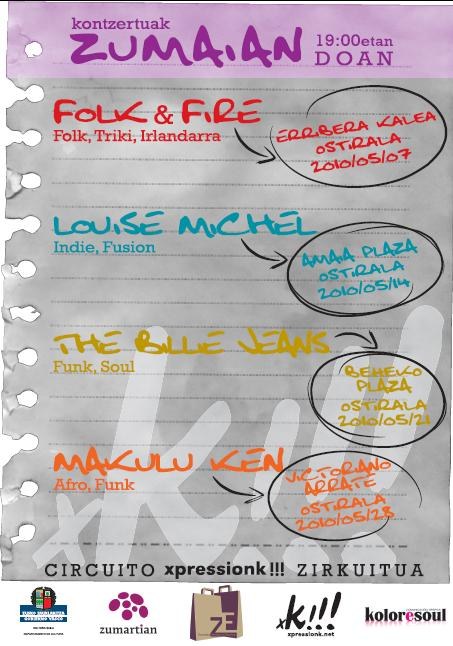 kontzertuak
ZUMAIAN
19:00etan
DOAN
FOLK & FIRE
Folk, Triki, Irlandarra
ERRIBERA KALEA
OSTIRALA
2010/05/07
LOUISE MICHEL
Indie, Fusion
AMAIA PLAZA
OSTIRALA
2010/05/14
THE BILLIE JEANS
Funk, Soul
BEHEKO
PLAZA
OSTIRALA
2010/05/21
MAKULU KEN
Afro, Funk
VICTORIANO
ARRATE
OSTIRALA
2010/05/28
xk!!!
CIRCUITO xpressionk!!! ZIRKUITUA
EUSKO JAURLARITZA
GOBIERNO VASCO
zumartian
ZE
xk!!!
xpressionk.net
koloresoul